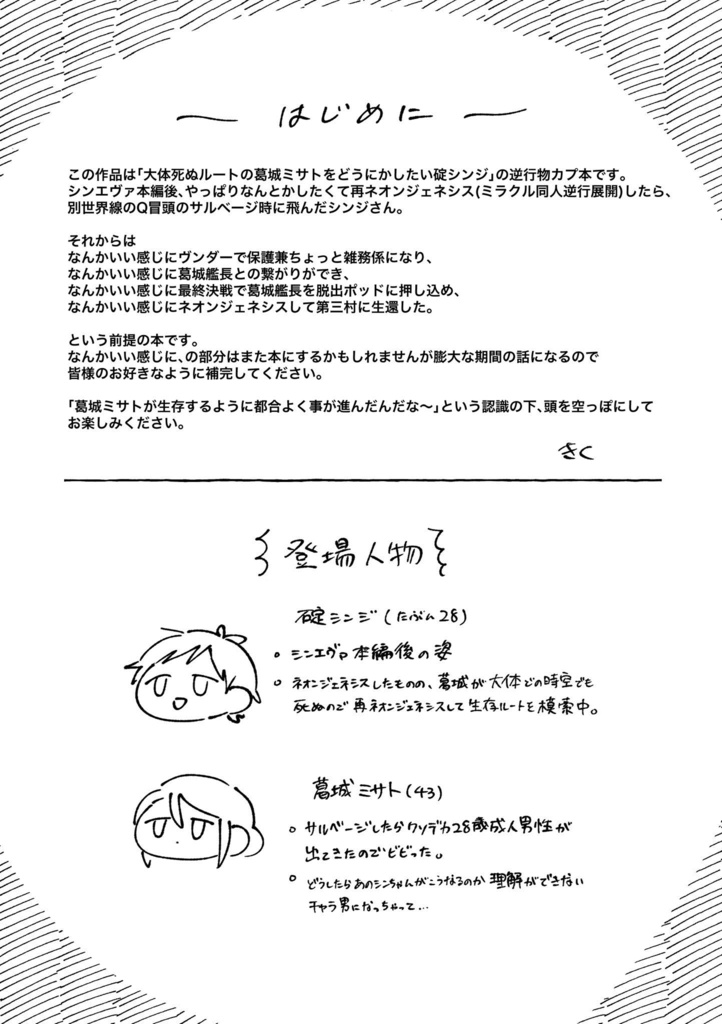 はじめに
この作品は「大体死ぬルートの葛城ミサトをどうにかしたい碇シンジ」の逆行物カプ本です。
シンエヴァ本編後、やっぱりなんとかしたくて再ネオンジェネシス(ミラクル同人逆行展開)したら、
別世界線のQ冒頭のサルベージ時に飛んだシンジさん。
それからは
なんかいい感じにヴンダーで保護兼ちょっと雑務係になり、
なんかいい感じに葛城艦長との繋がりができ、
なんかいい感じに最終決戦で葛城艦長を脱出ポッドに押し込め、
なんかいい感じにネオンジェネシスして第三村に生還した。
という前提の本です。
なんかいい感じに、の部分はまた本にするかもしれませんが膨大な期間の話になるので
皆様のお好きなように補完してください。
「葛城ミサトが生存するように都合よく事が進んだんだな〜」という認識の下、頭を空っぽにして
お楽しみください。
きく
登場人物
碇シンジ(たぶん28)
シンエヴァ本編後の姿
ネオンジェネシスしたものの、葛城が大体どの時空でも
死ぬので再ネオンジェネシスして生存ルートを模索中。
葛城ミサト(43)
サルベージしたらクソデカ28歳成人男性が
出てきたのでビビった。
どうしたらあのシンちゃんがこうなるのか理解ができない
チャラ男になっちゃって…